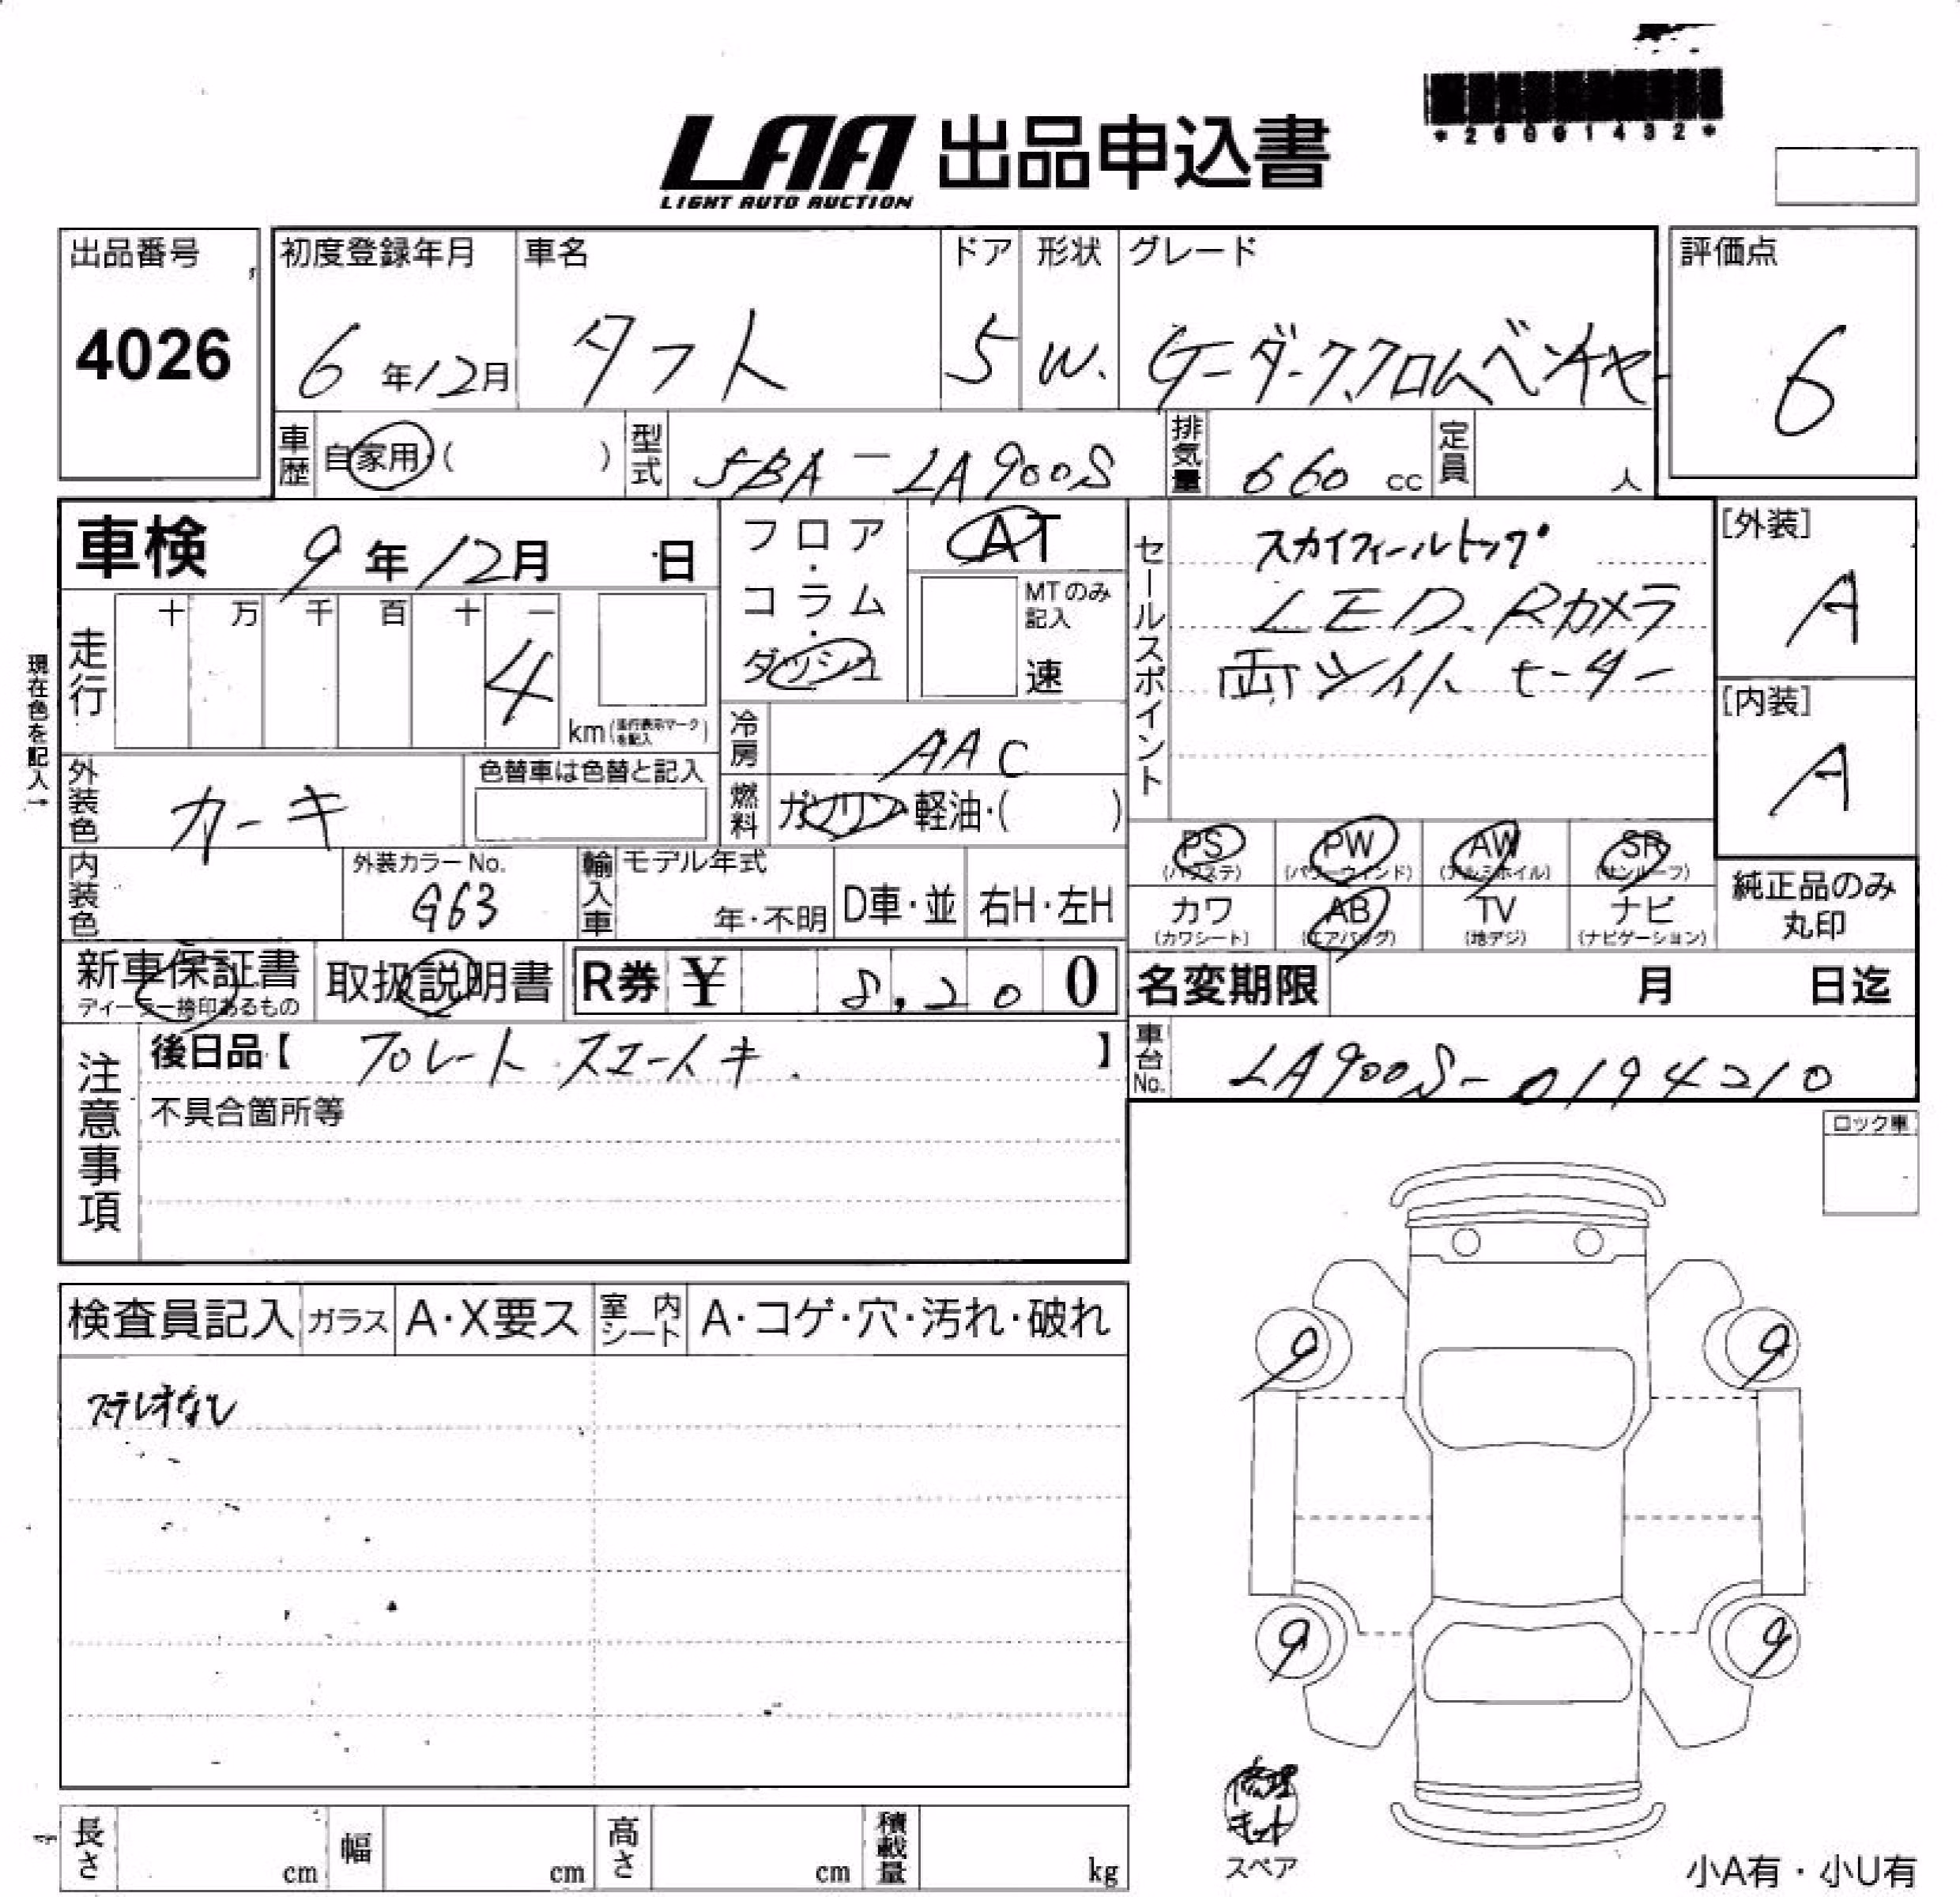 *26001432*
LAA 出品申込書
LIGHT AUTO AUCTION
出品番号 4026
初度登録年月 6年12月
車名 タフト
ドア 5
形状 W.
グレード Gーダーククロムベンチャー
評価点 6
車歴 自家用・( )
型式 5BA-LA900S
排気量 660 cc
定員 人
車検 9年12月 日
フロア・コラム・ダッシュ
AT
MTのみ記入
速
セールスポイント
スカイフィールトップ
LED. Rカメラ
両シイト ヒーター
[外装] A
[内装] A
現在色を記入→
走行 十 万 千 百 十 一
4
km(走行表示マークを記入)
冷房 AAC
燃料 ガソリン・軽油・( )
外装色 カーキ
色替車は色替と記入
内装色
外装カラーNo. G63
輸入車 モデル年式 年・不明
D車・並
右H・左H
PS (パワステ)
PW (パワーウィンド)
AW (アルミホイル)
SR (サンルーフ)
カワ (カワシート)
AB (エアバッグ)
TV (地デジ)
ナビ (ナビゲーション)
純正品のみ丸印
新車保証書
ディーラー捺印あるもの
取扱説明書
R券 ¥ 8,200
名変期限 月 日迄
注意事項
後日品【 プレート スエートキ 】
不具合箇所等
車台No. LA900S-0194210
ロック車
検査員記入 ガラス A・X要ス 室内シート A・コゲ・穴・汚れ・破れ
ステレオなし
9 9
9 9
修理キット
スペア
長さ cm 幅 cm 高さ cm 積載量 kg
小A有・小U有